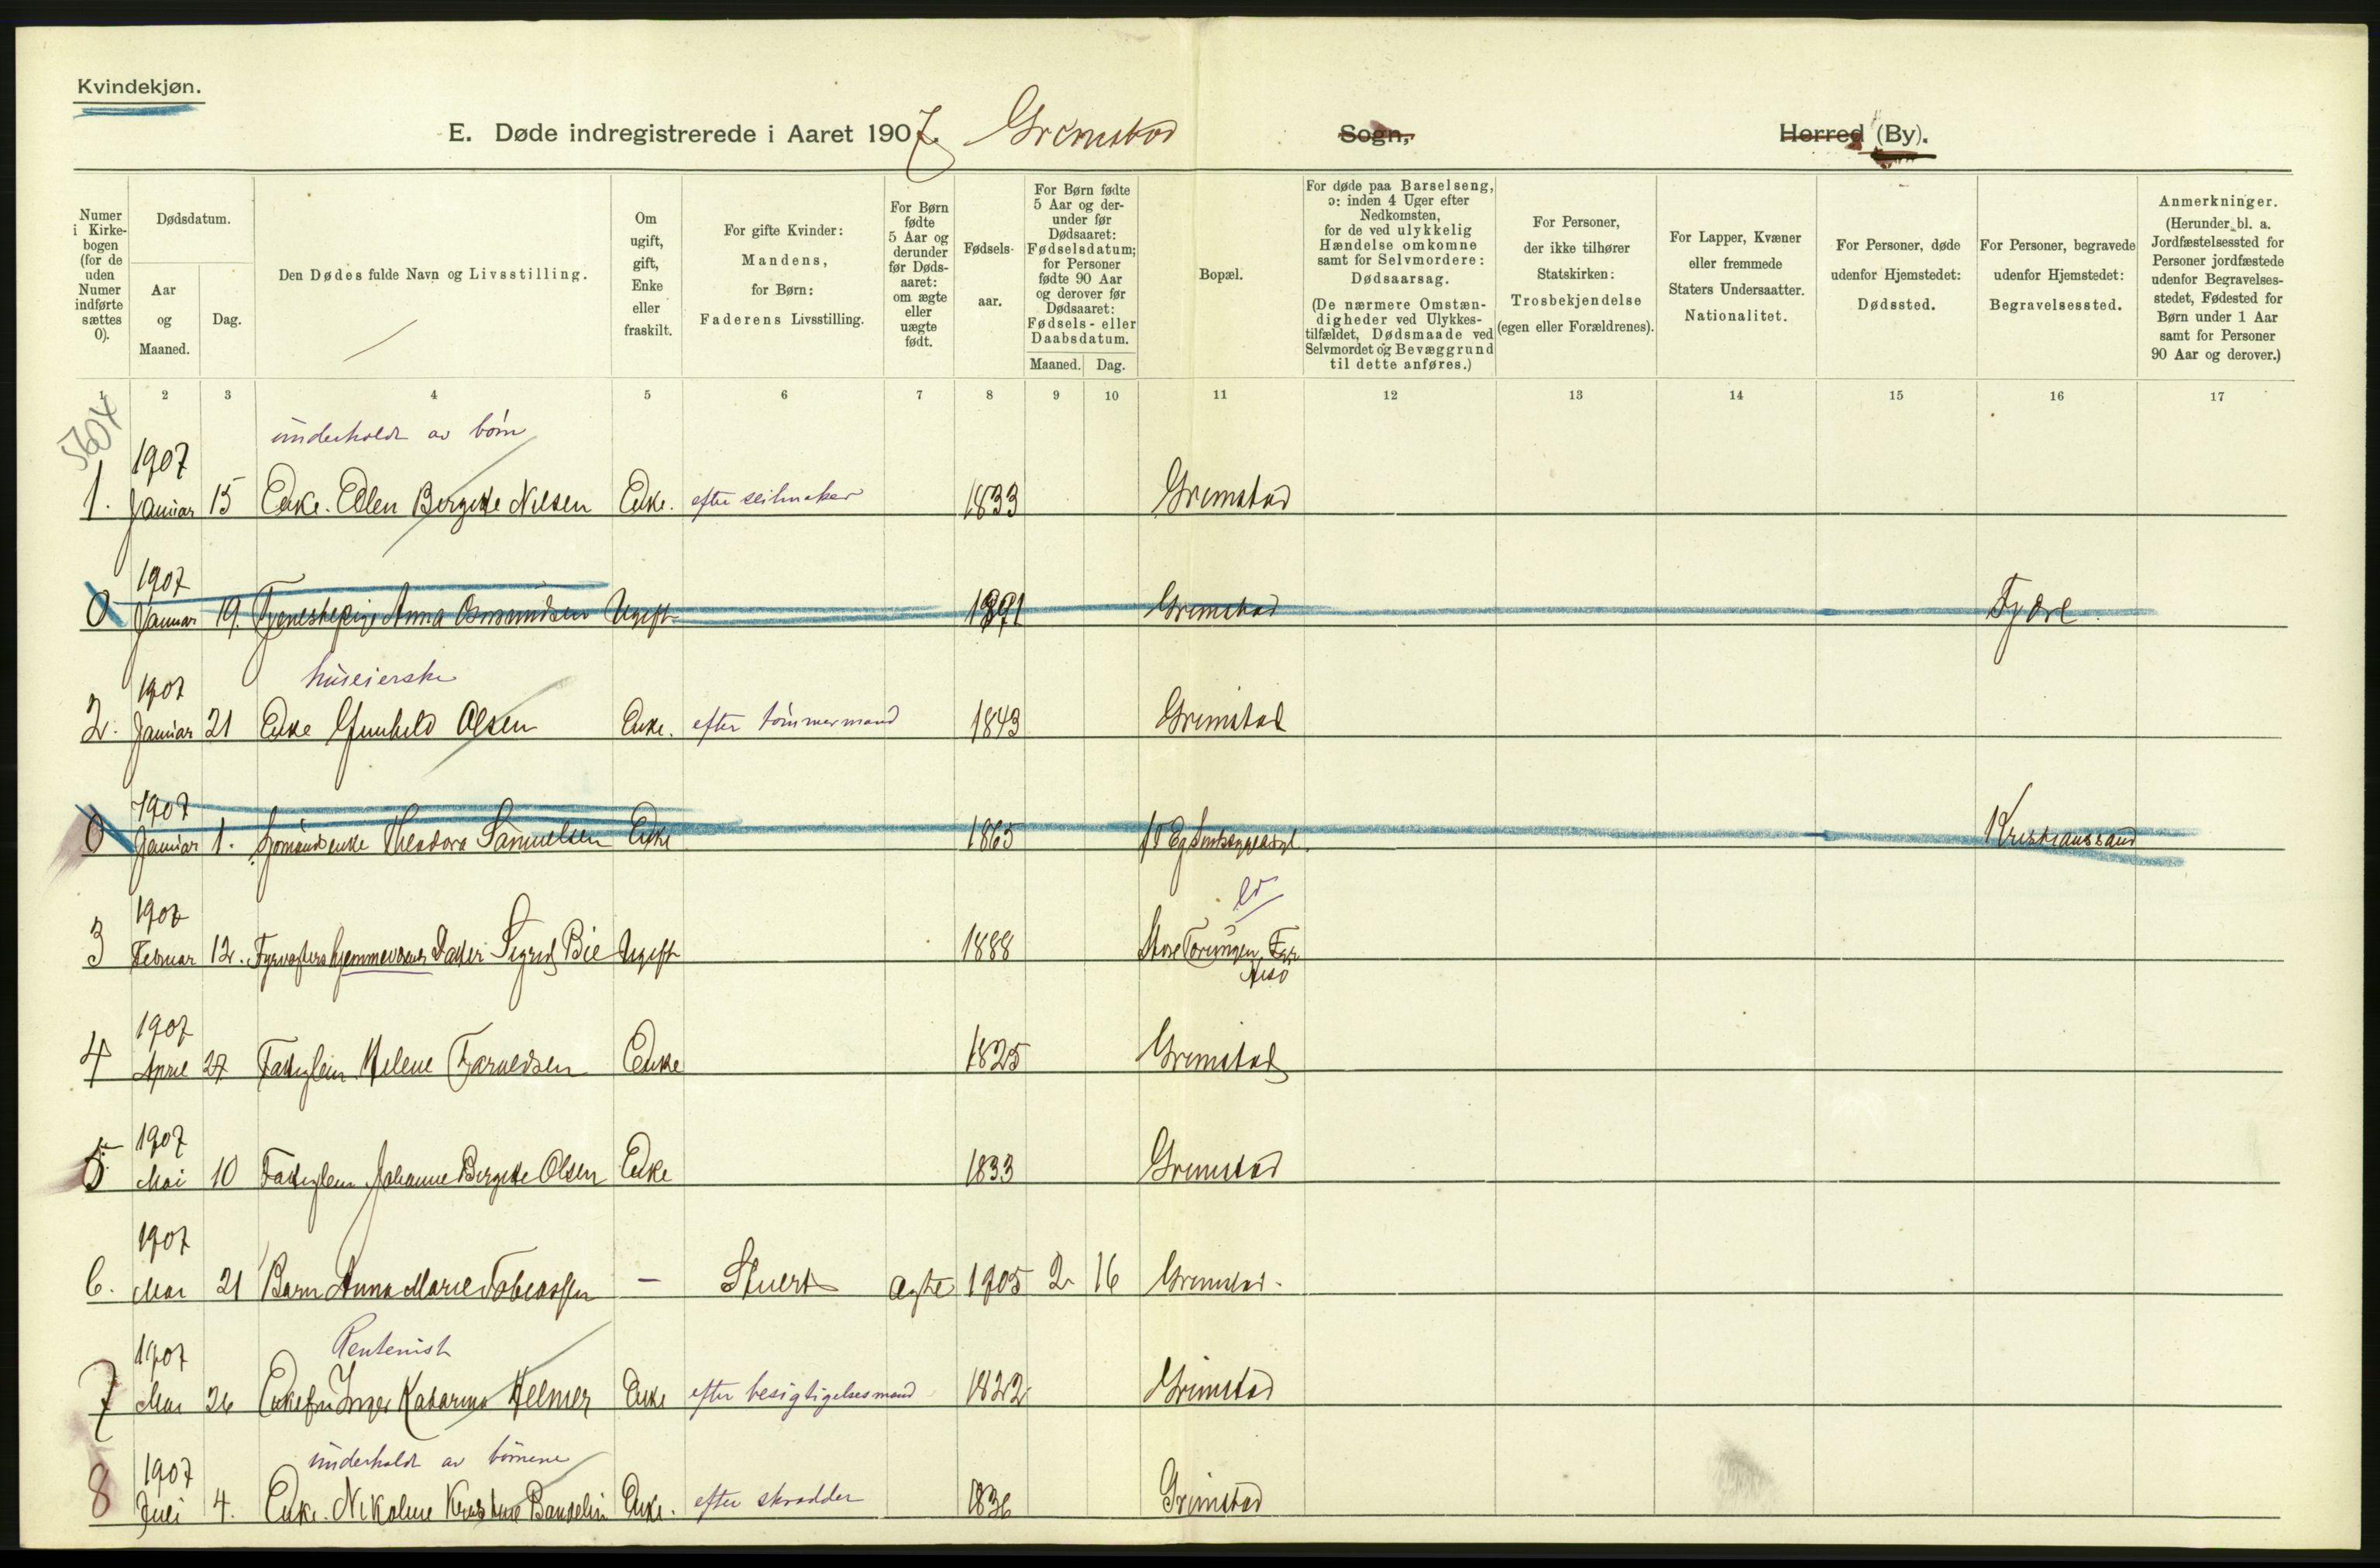 Kvindekjøn.
E. Døde indregistrerede i Aaret 1907. Grimstad Sogn, Herred (By).
Numer i Kirke- bogen (for de uden Numer indførte sættes 0).
Dødsdatum.
Aar og Maaned.
Dag.
Den Dødes fulde Navn og Livsstilling.
Om ugift, gift, Enke eller fraskilt.
For gifte Kvinder: Mandens, for Børn: Faderens Livsstilling.
For Børn fødte 5 Aar og derunder før Døds- aaret: om ægte eller uægte født.
Fødsels- aar.
For Børn fødte 5 Aar og der- under før Dødsaaret: Fødselsdatum; for Personer fødte 90 Aar og derover før Dødsaaret: Fødsels- eller Daabsdatum.
Maaned. Dag.
Bopæl.
For døde paa Barselseng, ɔ: inden 4 Uger efter Nedkomsten, for de ved ulykkelig Hændelse omkomne samt for Selvmordere: Dødsaarsag. (De nærmere Omstæn- digheder ved Ulykkes- tilfældet, Dødsmaade ved Selvmordet og Bevæggrund til dette anføres.)
For Personer, der ikke tilhører Statskirken: Trosbekjendelse (egen eller Forældrenes).
For Lapper, Kvæner eller fremmede Staters Undersaatter. Nationalitet.
For Personer, døde udenfor Hjemstedet: Dødssted.
For Personer, begravede udenfor Hjemstedet: Begravelsessted.
Anmerkninger. (Herunder bl. a. Jordfæstelsessted for Personer jordfæstede udenfor Begravelses- stedet, Fødested for Børn under 1 Aar samt for Personer 90 Aar og derover.)
1 2 3 4 5 6 7 8 9 10 11 12 13 14 15 16 17
5604
1907 underholdt av børn
1. Januar 15 Enke. Ellen Birgitte Nilsen Enke. efter seilmaker 1833 Grimstad
1907
0 Januar 19. Tjenestepige Anna Osmundsen Ugift 1891 Grimstad Fjære
1907 huseierske
2. Januar 21 Enke Gunhild Olsen Enke. efter tømmermand 1843 Grimstad
1907
0 Januar 1. Sjømandsenke Theodora Samuelsen Enke 1865 Kristianssand
1907
3 Februar 12. hjemmeværende Datter Sigrid Bie Ugift 1888 Store Torungen Fyr
1907
4 April 27 Fattiglem Helene Enke 1825 Grimstad
1907
5 Mai 10 Fattiglem Johanne Birgitte Olsen Enke 1833 Grimstad
1907
6. Mai 21 Barn Anna Marie Tobiassen — Stuert ægte 1905 2 16 Grimstad.
1907 Rentenist
7 Mai 26 Enkefru Inger Katarina Hellmer Enke efter besigtigelsesmand 1822 Grimstad
1907 underholdt av børnene
8 Juli 4. Enke. Nikoline Kristine Enke. efter skrædder 1836 Grimstad